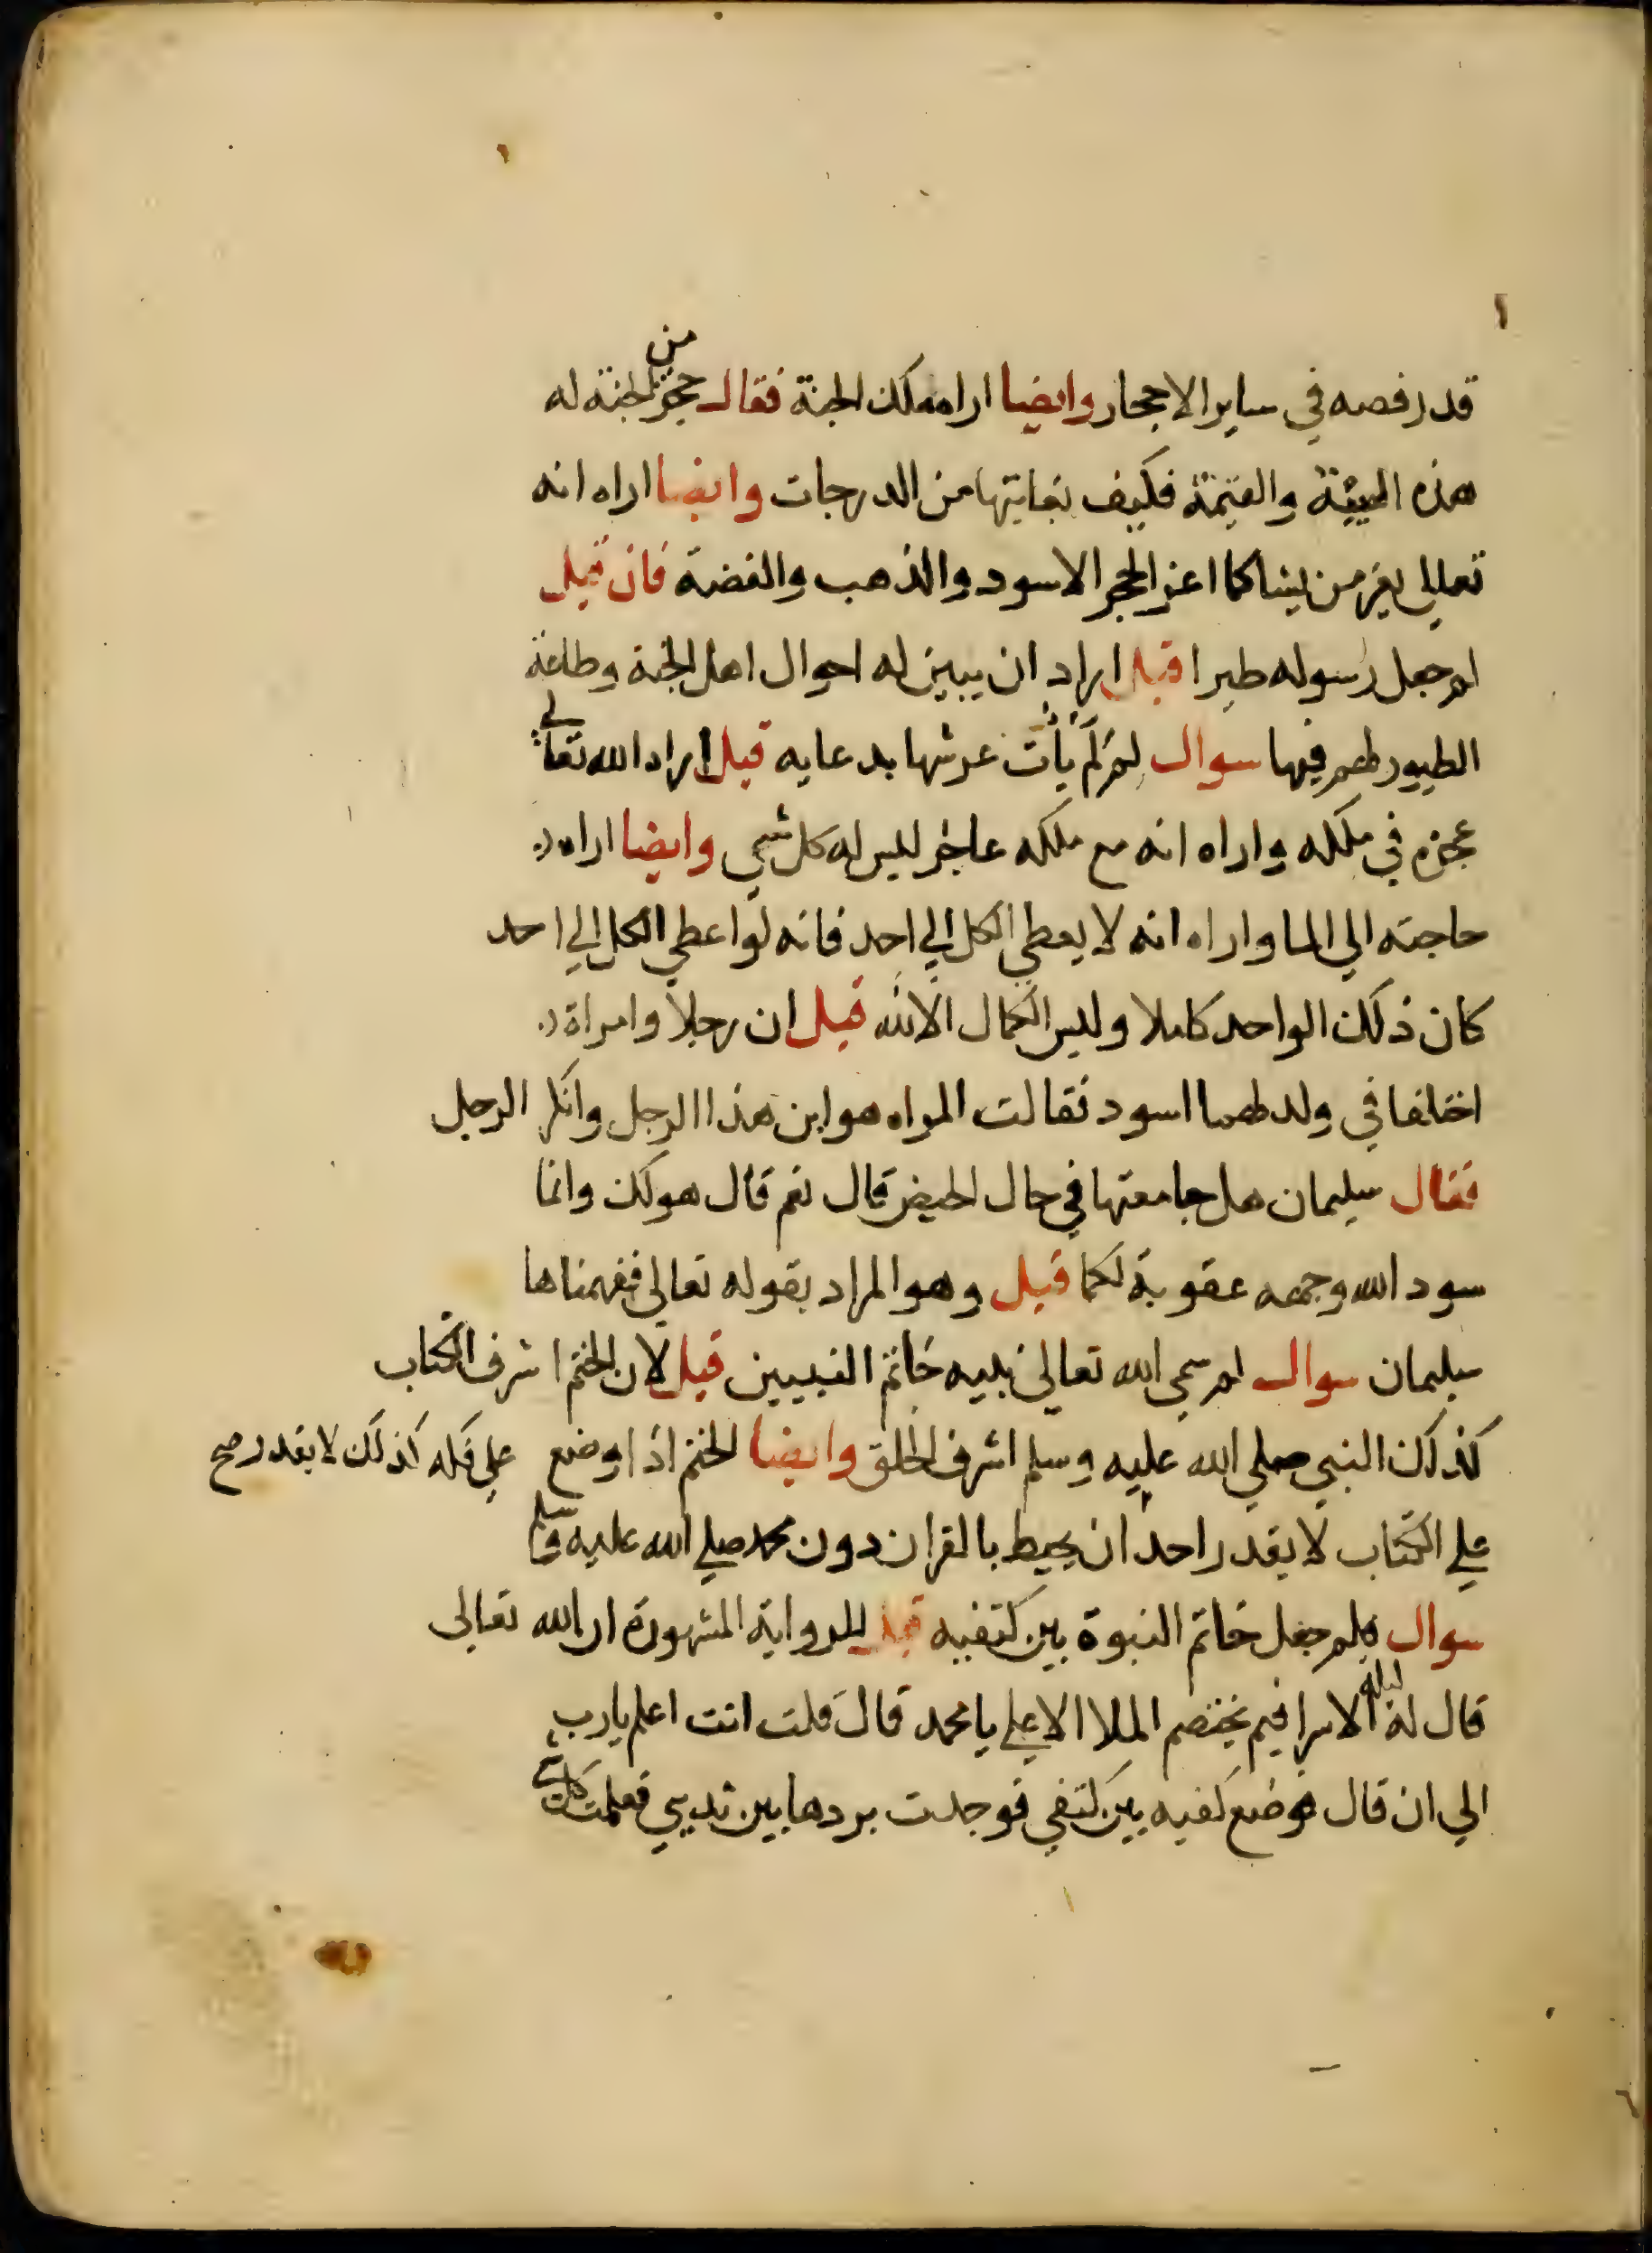 قدر فصه في ساير الاحجار وايضا اراه ملك الجنة فقال حجر من الجنة له
هذه الهيئة والقيمة فكيف بنهايتها من الدرجات وايضا اراه انه
تعالي يعز من يشا كما اعز الحجر الاسود والذهب والفضة فان قيل
لم جعل رسوله طيرا قيل اراد ان يبين له احوال اهل الجنة وطاعة
الطيور لهم فيها سوال لم لم يأت عرشها بدعايه قيل اراد الله تعالي
عجزه في ملكه واراه انه مع ملكه عاجز ليس له كل شي وايضا اراه
حاجته الي الما واراه انه لا يعطي الكل الي احد فانه لو اعطي الكل الي احد
كان ذلك الواحد كاملا وليس الكمال الا لله قيل ان رجلا وامراة
اختلفا في ولد لهما اسود فقالت المراه هو ابن هذا الرجل وانكر الرجل
فقال سليمان هل جامعتها في حال الحيض قال نعم قال هو لك وانما
سود الله وجهه عقوبة لكما قيل وهو المراد بقوله تعالي ففهمناها
سليمان سوال لم سمي الله تعالي نبيه خاتم النبيين قيل لان الختم اشرف الكتاب
كذلك النبي صلي الله عليه وسلم اشرف الخلق وايضا الختم اذا وضع
علي فكه كذلك لا يقدر صح
علي الكتاب لا يقدر احد ان يحيط بالقران دون محمد صلي الله عليه وسلم
سوال فلم جعل خاتم النبوة بين كتفيه قيل للرواية المشهورة ان الله تعالي
قال له ليلة الاسرا فيم يختصم الملا الاعلي يا محمد قال قلت انت اعلم يارب
الي ان قال فوضع كفيه بين كتفي فوجدت بردها بين ثديي فعلمت كل شي